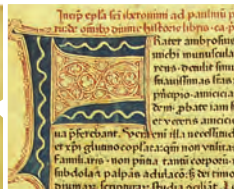 Incip epla sci iheronimi ad paulinu p
de omib; diuine historie libris · ca · p
Rater ambrosius
michi munuscula
rens · detulit simul
suauissimas lras ·
pncipio · amicicia
dem · phate iam f
et veteris amicicie
ua pferebant. Vera eni illa necessitudo
et xpi glutino copulata: qm non vtilitas
familiaris · non pntia tantu corporu ·
subdola 7 palpas adulaco: sed dei timor
diuinaru scripturaru studia ociliat. L